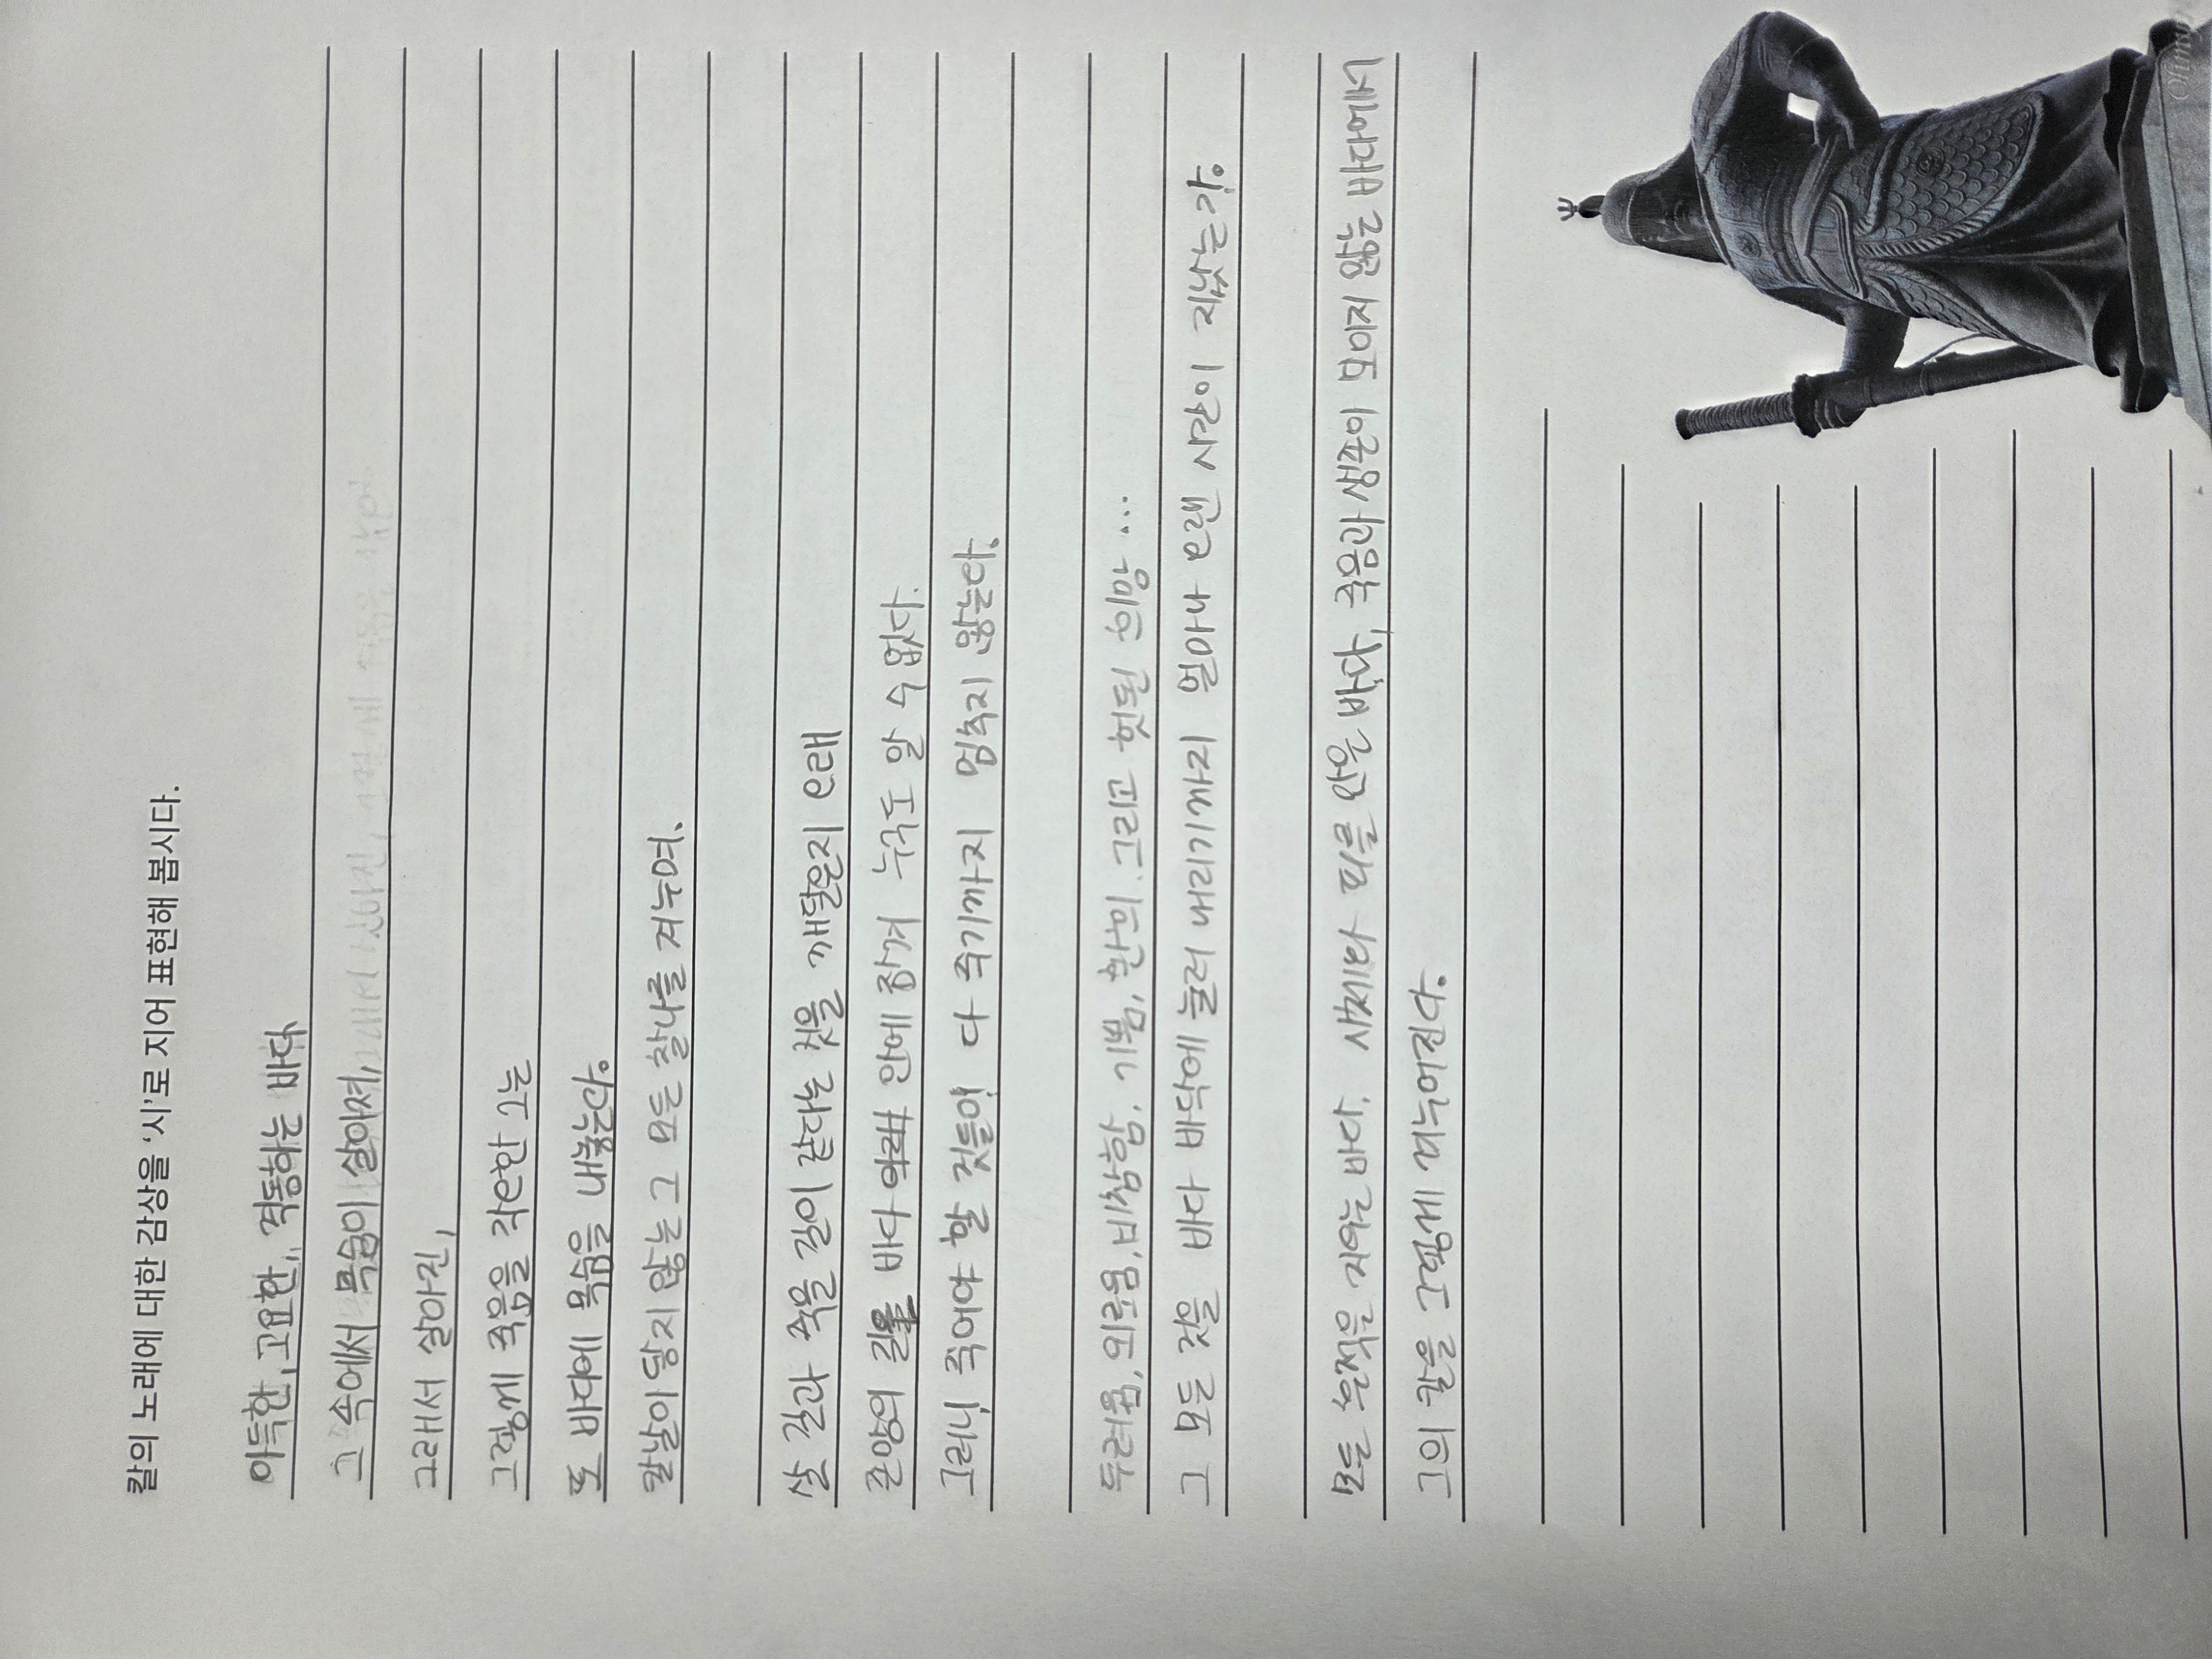 칼의 노래에 대한 감상을 '시'로 지어 표현해 봅시다.
아득한, 고요한, 격동하는 바다
그 속에서 목숨이 살아져,
그래서 살아진,
그렇게 죽음을 각오한 그는
또 바다에 목숨을 내놓는다.
칼날이 닿지 않는 그 모든 찰나를 겨누며.
살 길과 죽을 길이 같다는 것을 깨달은지 오래
온 양의 길을 바다 안에 잠겨 누구도 알 수 없다.
그러니 죽어야 할 것들이 다 죽기까지 멈추지 않는다.
두려움, 외로움, 비참함, 기쁨, 환희. 그리고 헛된 희망...
그 모든 것을 바다 바닥에 눌러 내리기에서 넘어서 오랜 시간이 지났는가.
점을 수평선은 지우는 바다. 시체와 피를 담은 바다. 죽음과 사랑이 묻지 않은 바다에서
그의 칼을 고쳐 겨누어진다.